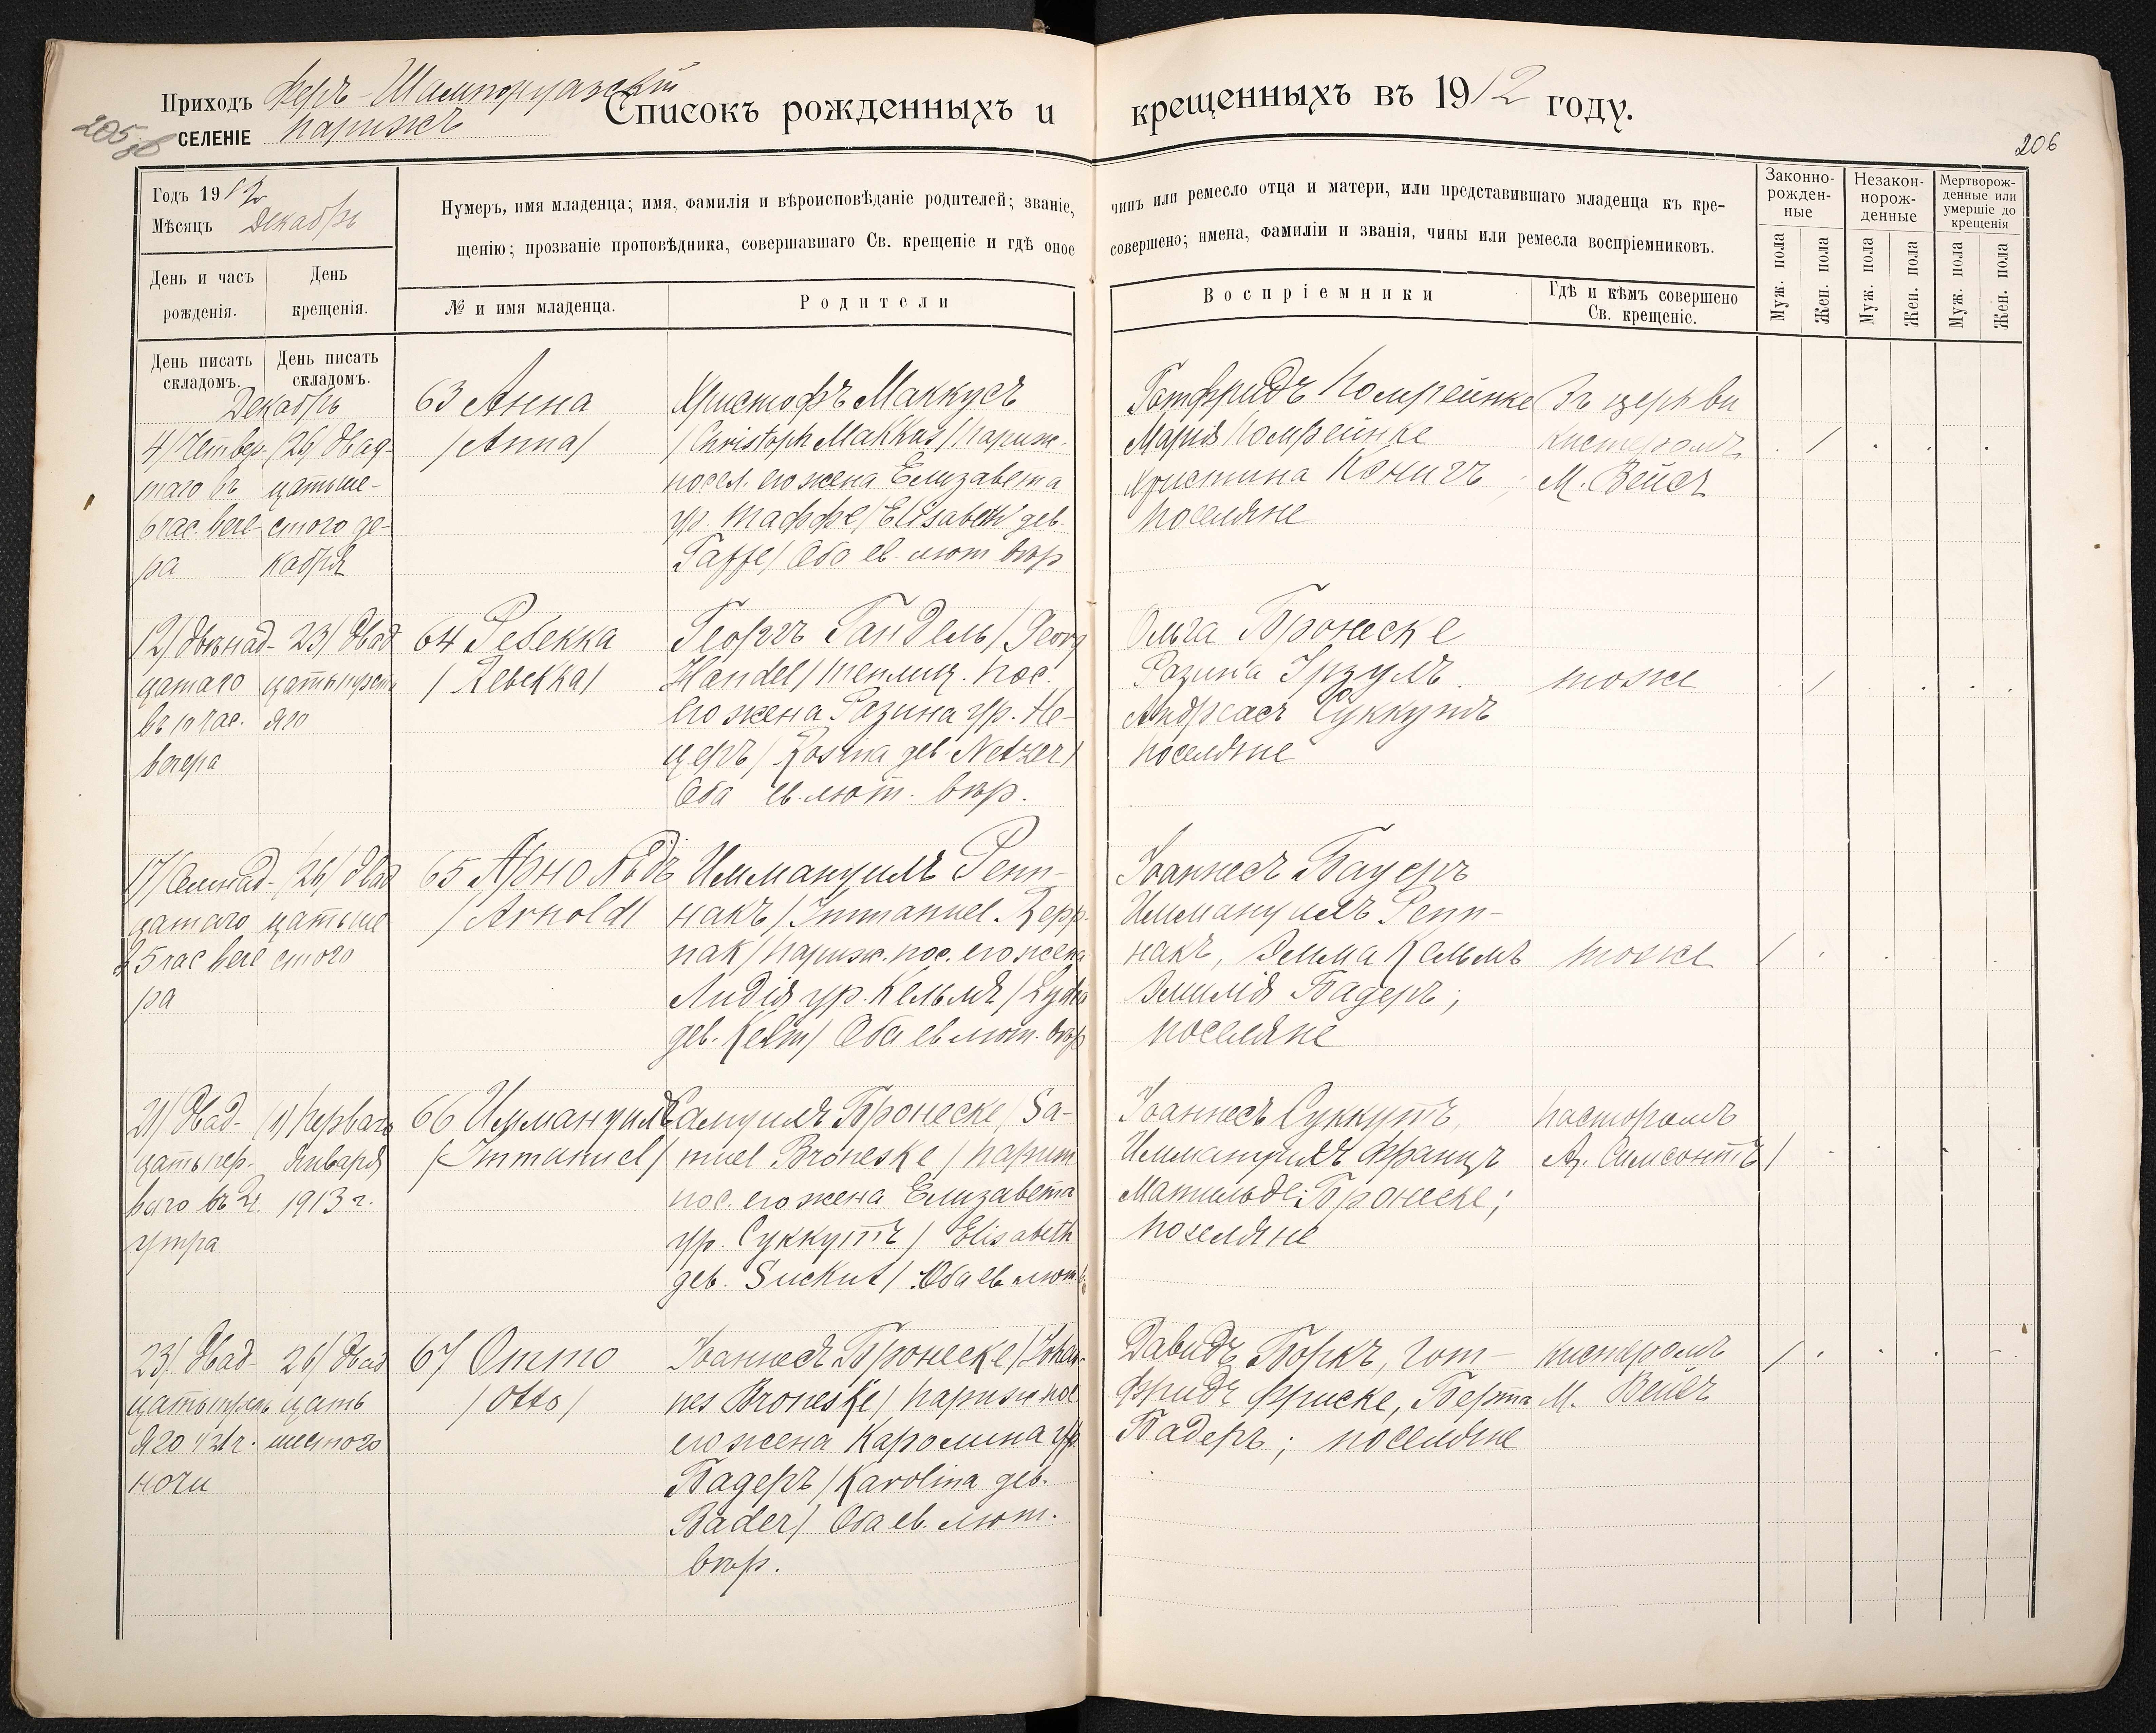 Приходъ Феръ-Шампенуазскій
Списокъ рожденныхъ и крещенныхъ въ 1912 году.
205 об
СЕЛЕНІЕ Парижъ
206
Годъ 1912
Мѣсяцъ Декабрь
День и часъ рожденія.
День крещенія.
Нумеръ, имя младенца; имя, фамилія и вѣроисповѣданіе родителей; званіе, чинъ или ремесло отца и матери, или представившаго младенца къ кре-
щенію; прозваніе проповѣдника, совершавшаго Св. крещеніе и гдѣ оное совершено; имена, фамиліи и званія, чины или ремесла воспріемниковъ.
№ и имя младенца.
Родители
Воспріемники
Гдѣ и кѣмъ совершено
Св. крещеніе.
Законно-
рожден-
ные
Незакон-
норож-
денные
Мертворож-
денные или
умершіе до
крещенія
Муж. пола
Жен. пола
Муж. пола
Жен. пола
Муж. пола
Жен. пола
День писать
складомъ.
День писать
складомъ.
Декабрь
4/ Четвер-
таго въ
6 час. вече-
ра
/26/ Двад-
цатьше-
стого де-
кабря
63 Анна
/Anna/
Христофъ Маккусъ
/Christoph Makkus/ Париж.
посел. его жена Елизавета
ур. Таффе/Elisabeth дев.
Taffe/ Оба ев. лют. вѣр
Готфридъ Помрейнке
Марія Помрейнке
Христина Кенигъ;
поселяне
Въ церкви
кистеромъ
М. Вейсъ
/
12/ Двѣнад-
цатаго
въ 10 час.
вечера
23/ Двад
цатьтреть-
яго
64 Ребекка
/Rebekka/
Георгъ Гандель/Georg
Handel/ теплиц. пос.
его жена Розина ур. Не-
церъ/ Rosina дев. Netzer/
Оба ев. лют. вѣр.
Ольга Бронеске
Розина Ірзумъ
Андреасъ Суккутъ
поселяне
тоже
/
17/ Семнад-
цатаго
въ 5 час вече
ра
/26/ Двад
цатьше
стого
65 Арнольдъ
/Arnold/
Иммануилъ Репп-
накъ/Immanuel Repp-
nak/ париж. пос. его жена
Лидія ур. Кельмъ/Lydia
дев. Kelm/ Оба ев лют. вѣр
Іоаннесъ Бауеръ
Иммануилъ Репп-
накъ, Эмма Кельмъ
Эмилія Бадеръ;
поселяне
тоже
/
21/ Двад-
цатьпер-
ваго въ 2 ч.
утра
/1/ Перваго
Января
1913 г.
66 Иммануилъ
/Immanuel/
Самуилъ Бронеске/Sa-
muel Broneske/ париж
пос. его жена Елизавета
ур. Суккутъ/ Elisabeth
дев. Suckut/ Оба ев. лют. в
Іоаннесъ Суккутъ,
Иммануилъ Францъ
Матильде Бронеске;
поселяне
пасторомъ
А. Симсонъ
/
23/ Двад-
цатьтреть
яго 12 ч.
ночи
26/ Двад
цать
шестого
67 Отто
/Otto/
Іоаннесъ Бронеске/Johan-
nes Broneske/ париж пос
его жена Каролина ур
Бадеръ/Karolina дев.
Bader/ Оба ев. лют.
вѣр.
Давидъ Боркъ, Гот-
фридъ Фриске, Берта
Бадеръ; поселяне
кистеромъ
М. Вейсъ
/